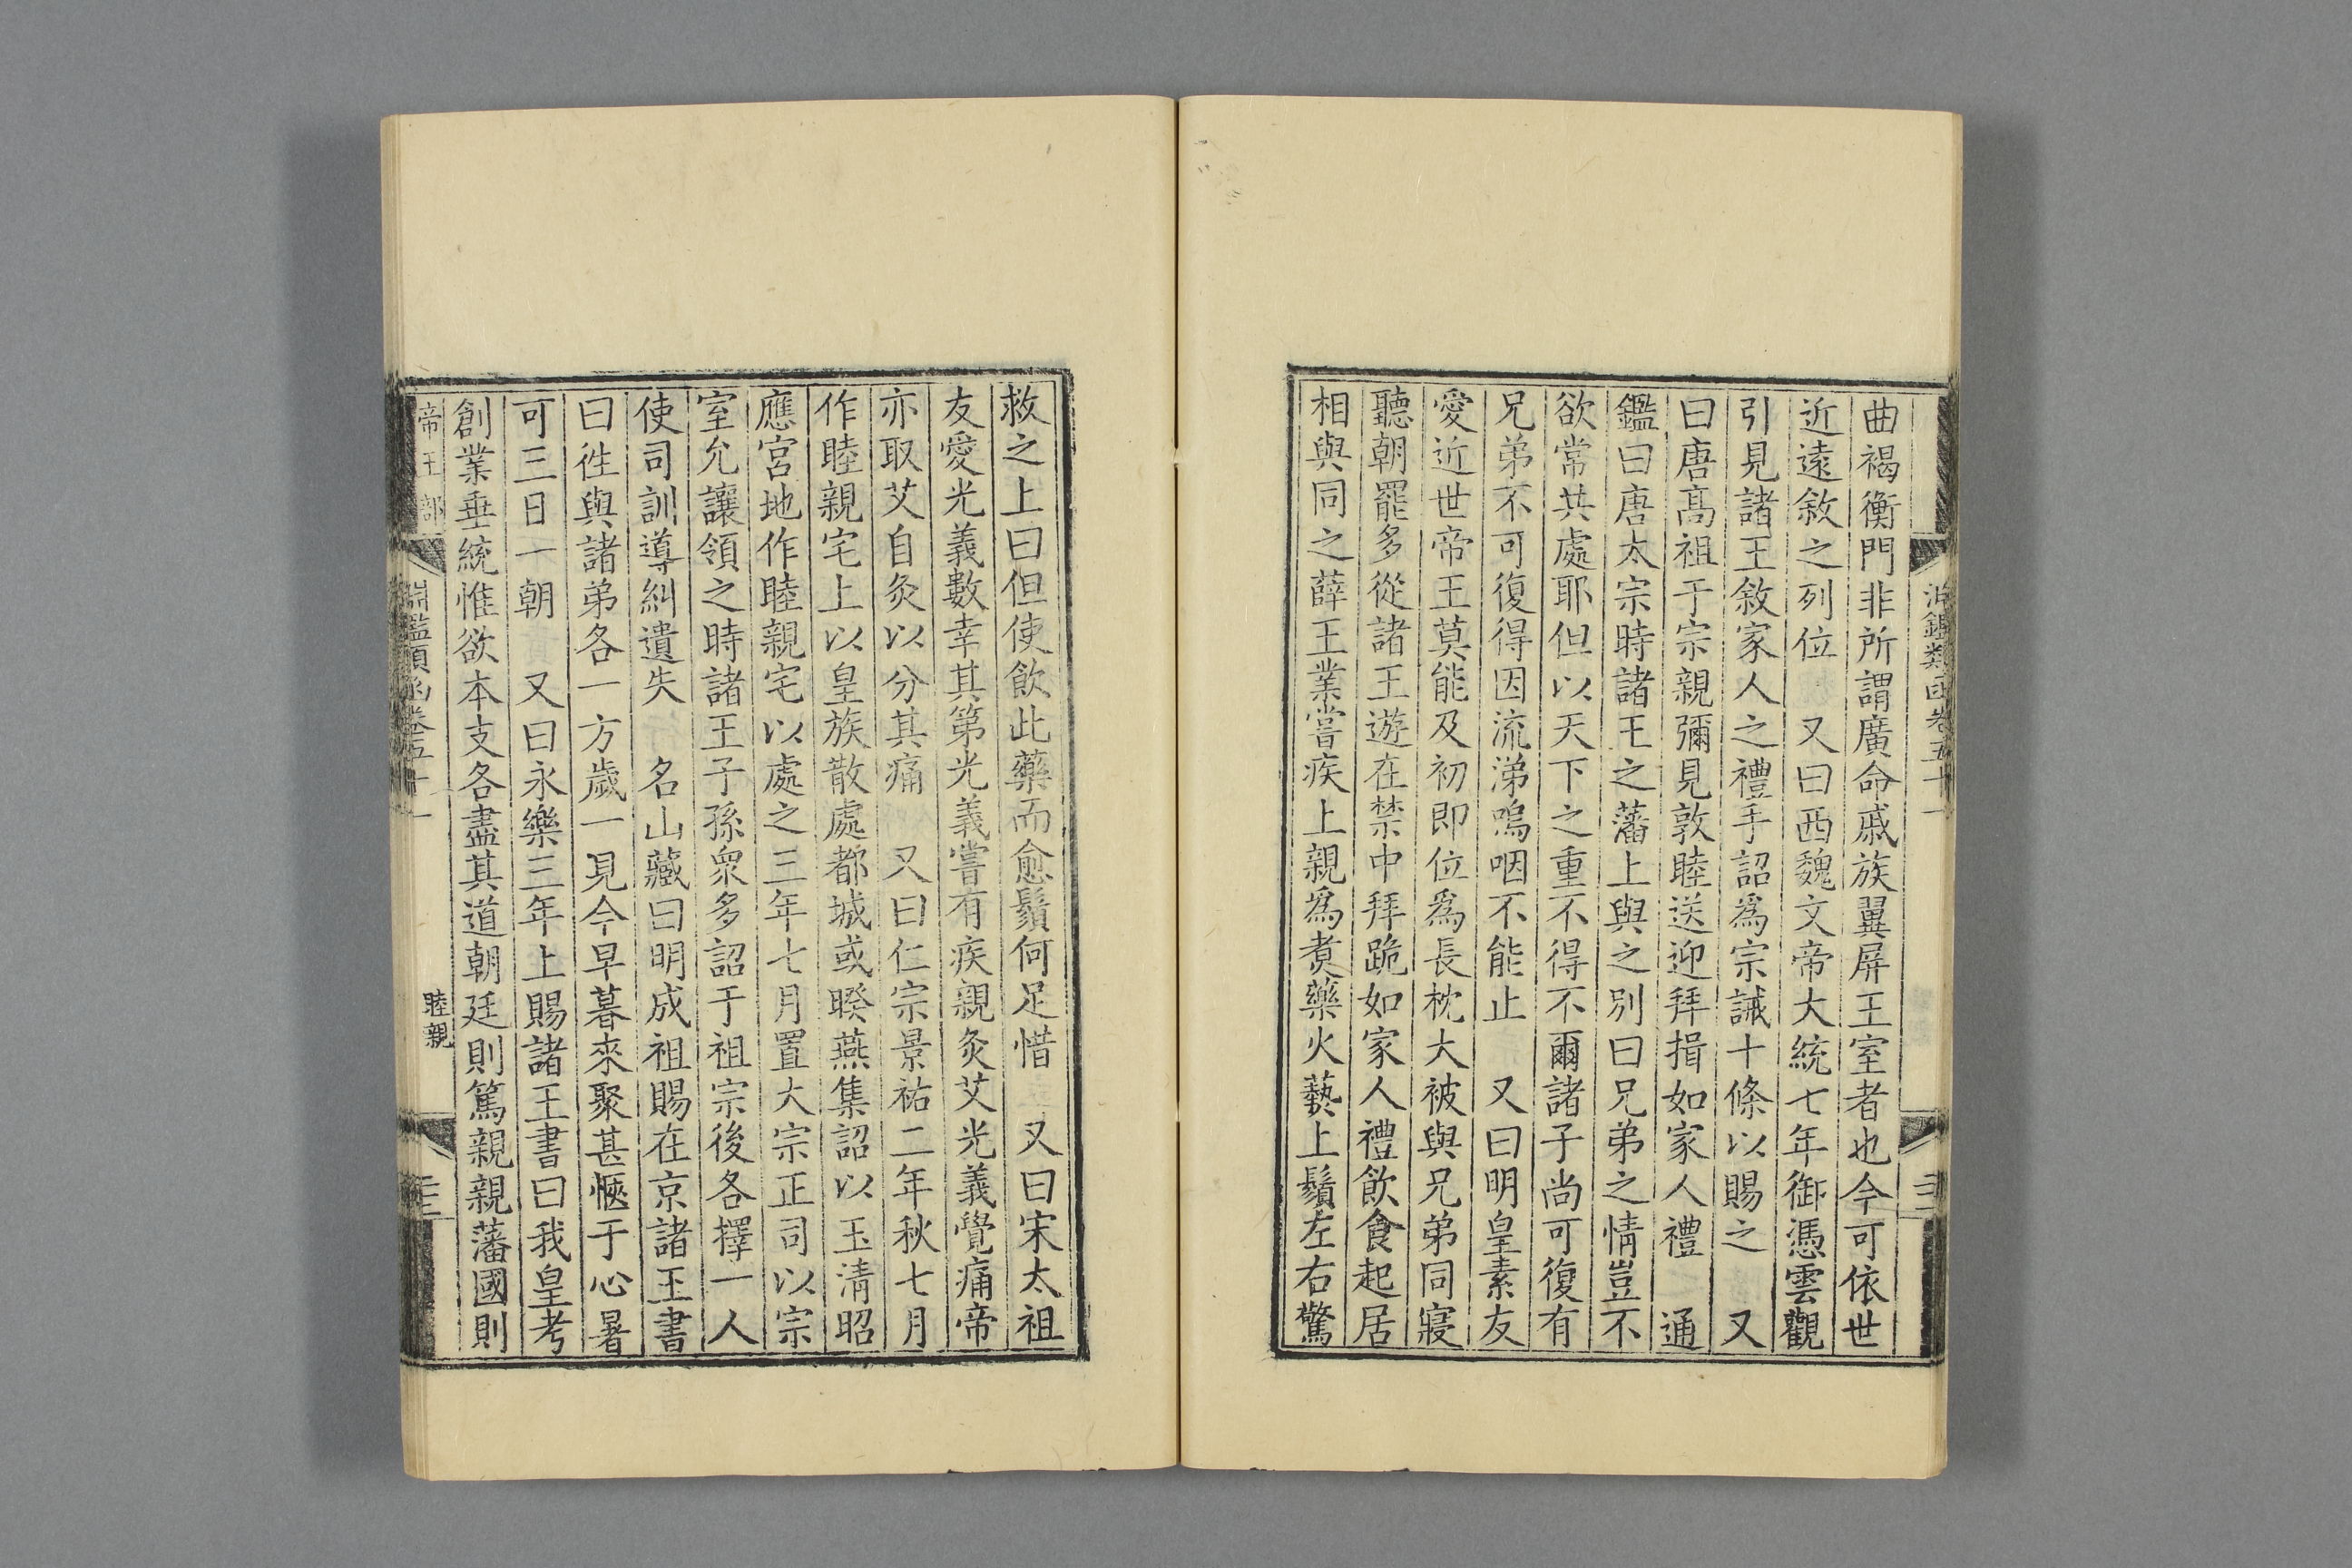 曲褐衡門非所謂廣命戚族翼屏王室者也今可依世
近遠敘之列位　又曰西魏文帝大統七年御憑雲觀
引見諸王敘家人之禮手詔爲宗誡十條以賜之　又
曰唐高祖于宗親彌見敦睦送迎拜揖如家人禮　通
鑑曰唐太宗時諸王之藩上與之別曰兄弟之情豈不
欲常共處耶但以天下之重不得不爾諸子尚可復有
兄弟不可復得因流涕嗚咽不能止　又曰明皇素友
愛近世帝王莫能及初即位爲長枕大被與兄弟同寢
聽朝罷多從諸王遊在禁中拜跪如家人禮飲食起居
相與同之薛王業嘗疾上親爲煑藥火爇上鬚左右驚
救之上曰但使飲此藥而愈鬚何足惜　又曰宋太祖
友愛光義數幸其第光義嘗有疾親灸艾光義覺痛帝
亦取艾自灸以分其痛　又曰仁宗景祐二年秋七月
作睦親宅上以皇族散處都城或睽燕集詔以玉清昭
應宮地作睦親宅以處之三年七月置大宗正司以宗
室允讓領之時諸王子孫衆多詔于祖宗後各擇一人
使司訓導糾遺失　名山藏曰明成祖賜在京諸王書
曰徃與諸弟各一方歲一見今早暮來聚甚愜于心暑
可三日一朝　又曰永樂三年上賜諸王書曰我皇考
創業垂統惟欲本支各盡其道朝廷則篤親親藩國則
帝王部　淵鑑類函卷五十一　睦親